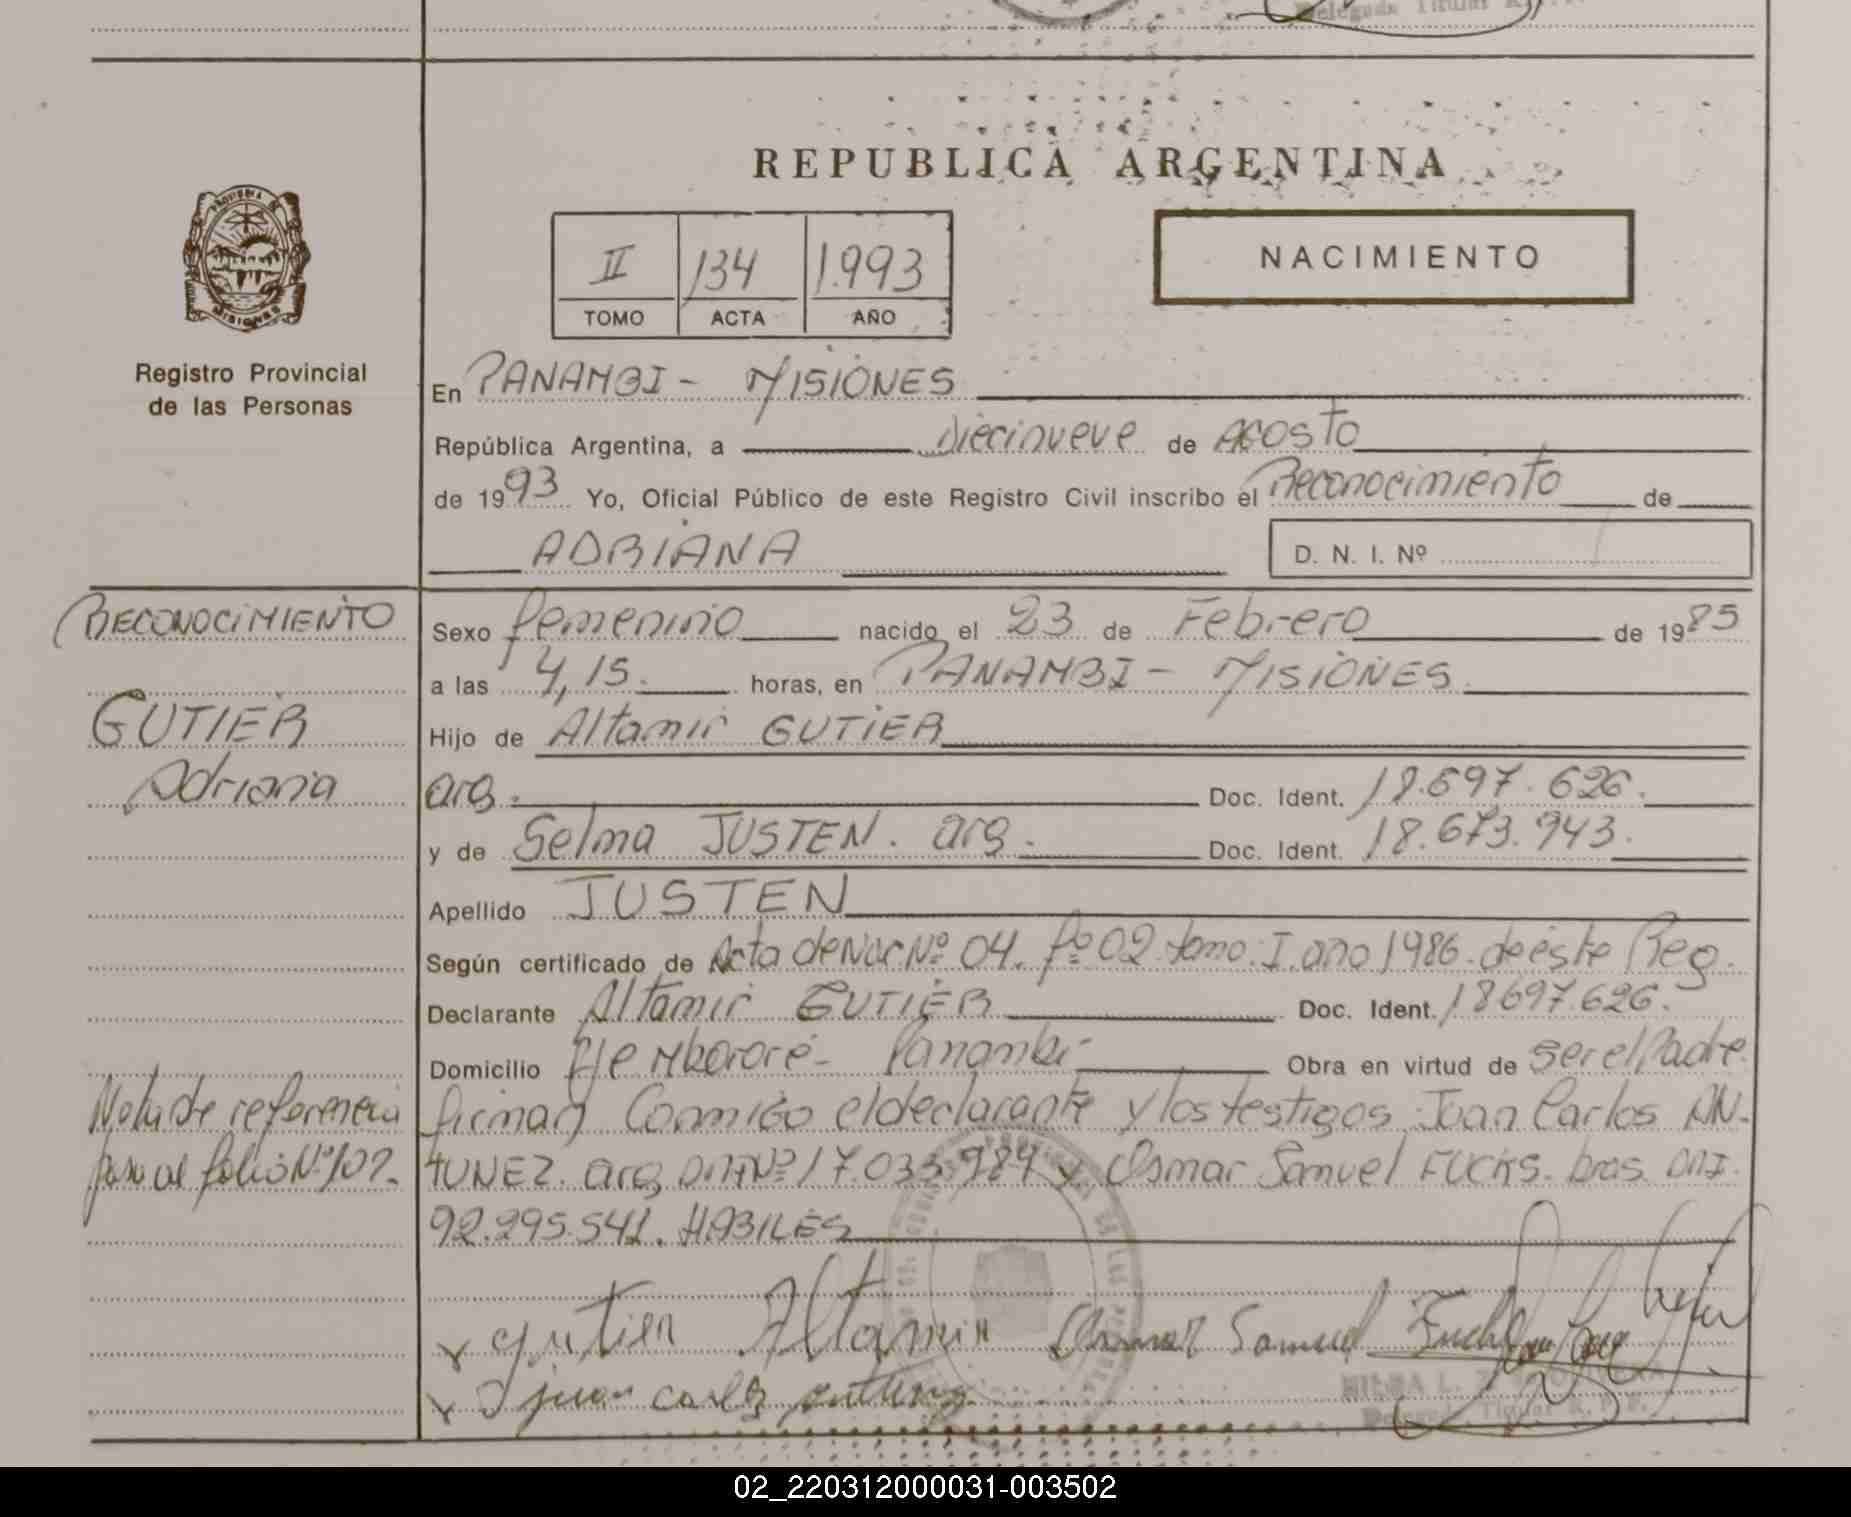 Delegada Titular R.
REPUBLICA ARGENTINA
II 134 1.993
TOMO ACTA AÑO
NACIMIENTO
PROVINCIA DE
MISIONES
Registro Provincial
de las Personas
En PANAMBI - MISIONES
República Argentina, a diecinueve de AGOSTO
de 1993 Yo, Oficial Público de este Registro Civil inscribo el Reconocimiento de
ADRIANA D. N. I. Nº
RECONOCIMIENTO
GUTIER
Adriana
Nota de referencia
pasa al folio Nº 107.
Sexo femenino nacido el 23 de Febrero de 1985
a las 4,15. horas, en PANAMBI - MISIONES
Hijo de Altamir GUTIER
arg. Doc. Ident. 18.697.626.
y de Selma JUSTEN. arg. Doc. Ident. 18.673.943.
Apellido JUSTEN
Según certificado de Acta de Nac Nº 04. fº 02 tomo: I. año 1986. de éste Reg.
Declarante Altamir GUTIER Doc. Ident. 18697.626.
Domicilio Mbororé - Panambi Obra en virtud de ser el Padre.
firman Conmigo el declarante y los testigos: Juan Carlos AN-
TUNEZ. arg. DNI Nº 17.033.984 y Osmar Samuel FUCKS. bras. DNI.
92.295.541. HABILES
Gutier Altamir Osmar Samuel
juan carlos
Delegada Titular R. P. P.
02_220312000031-003502